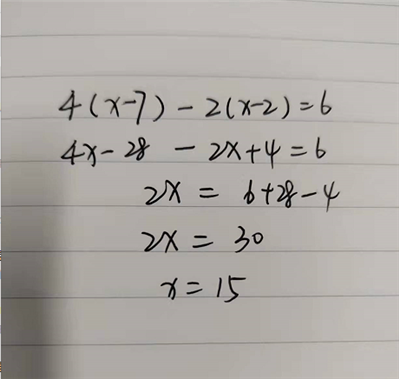 4(x-7)-2(x-2)=6
4x-28-2x+4=6
2x=6+28-4
2x=30
x=15